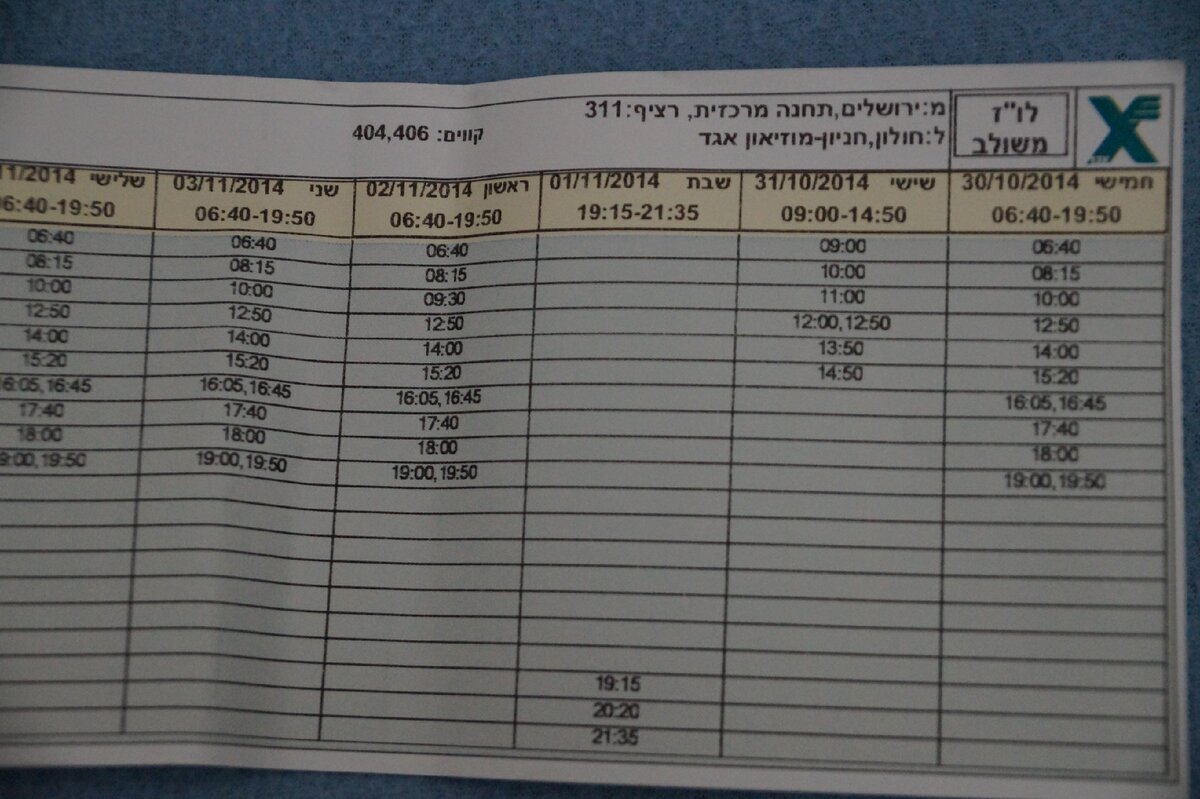 לו"ז
משולב
מ:ירושלים,תחנה מרכזית, רציף:311
ל:חולון,חניון-מוזיאון אגד
קווים: 404,406
חמישי 30/10/2014
06:40-19:50
06:40
08:15
10:00
12:50
14:00
15:20
16:05,16:45
17:40
18:00
19:00,19:50
שישי 31/10/2014
09:00-14:50
09:00
10:00
11:00
12:00,12:50
13:50
14:50
שבת 01/11/2014
19:15-21:35
19:15
20:20
21:35
ראשון 02/11/2014
06:40-19:50
06:40
08:15
09:30
12:50
14:00
15:20
16:05,16:45
17:40
18:00
19:00,19:50
שני 03/11/2014
06:40-19:50
06:40
08:15
10:00
12:50
14:00
15:20
16:05,16:45
17:40
18:00
19:00,19:50
שלישי 11/2014
6:40-19:50
06:40
08:15
10:00
12:50
14:00
15:20
16:05,16:45
17:40
18:00
9:00,19:50